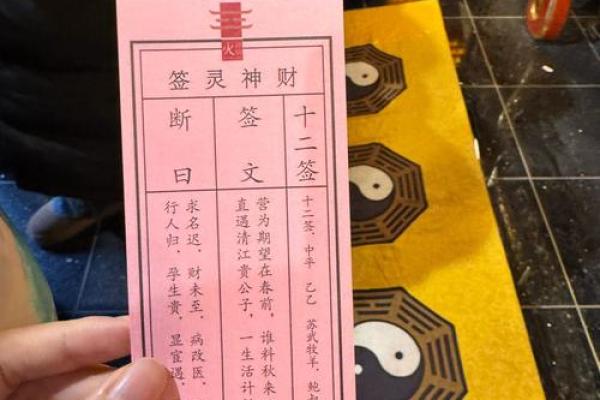 火
财神灵签
十二签
十二签、中平 乙乙 苏武牧羊、鲍
签文
营为期望在春前，谁料秋来
直遇清江贵公子，一生活计
断曰
求名迟、财未至、病改医、
行人归、孕生贵、显宦遇、